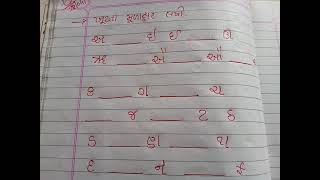 → ખૂટતા મૂળાક્ષર લખો.
અ ____ ઇ ઈ ____ ઊ
ઋ ____ ઐ ____ ઔ ____
ક ____ ગ ____ ચ
____ જ ____ ટ ઠ
ડ ____ ણ ____ થ
દ ____ ન ____ ફ